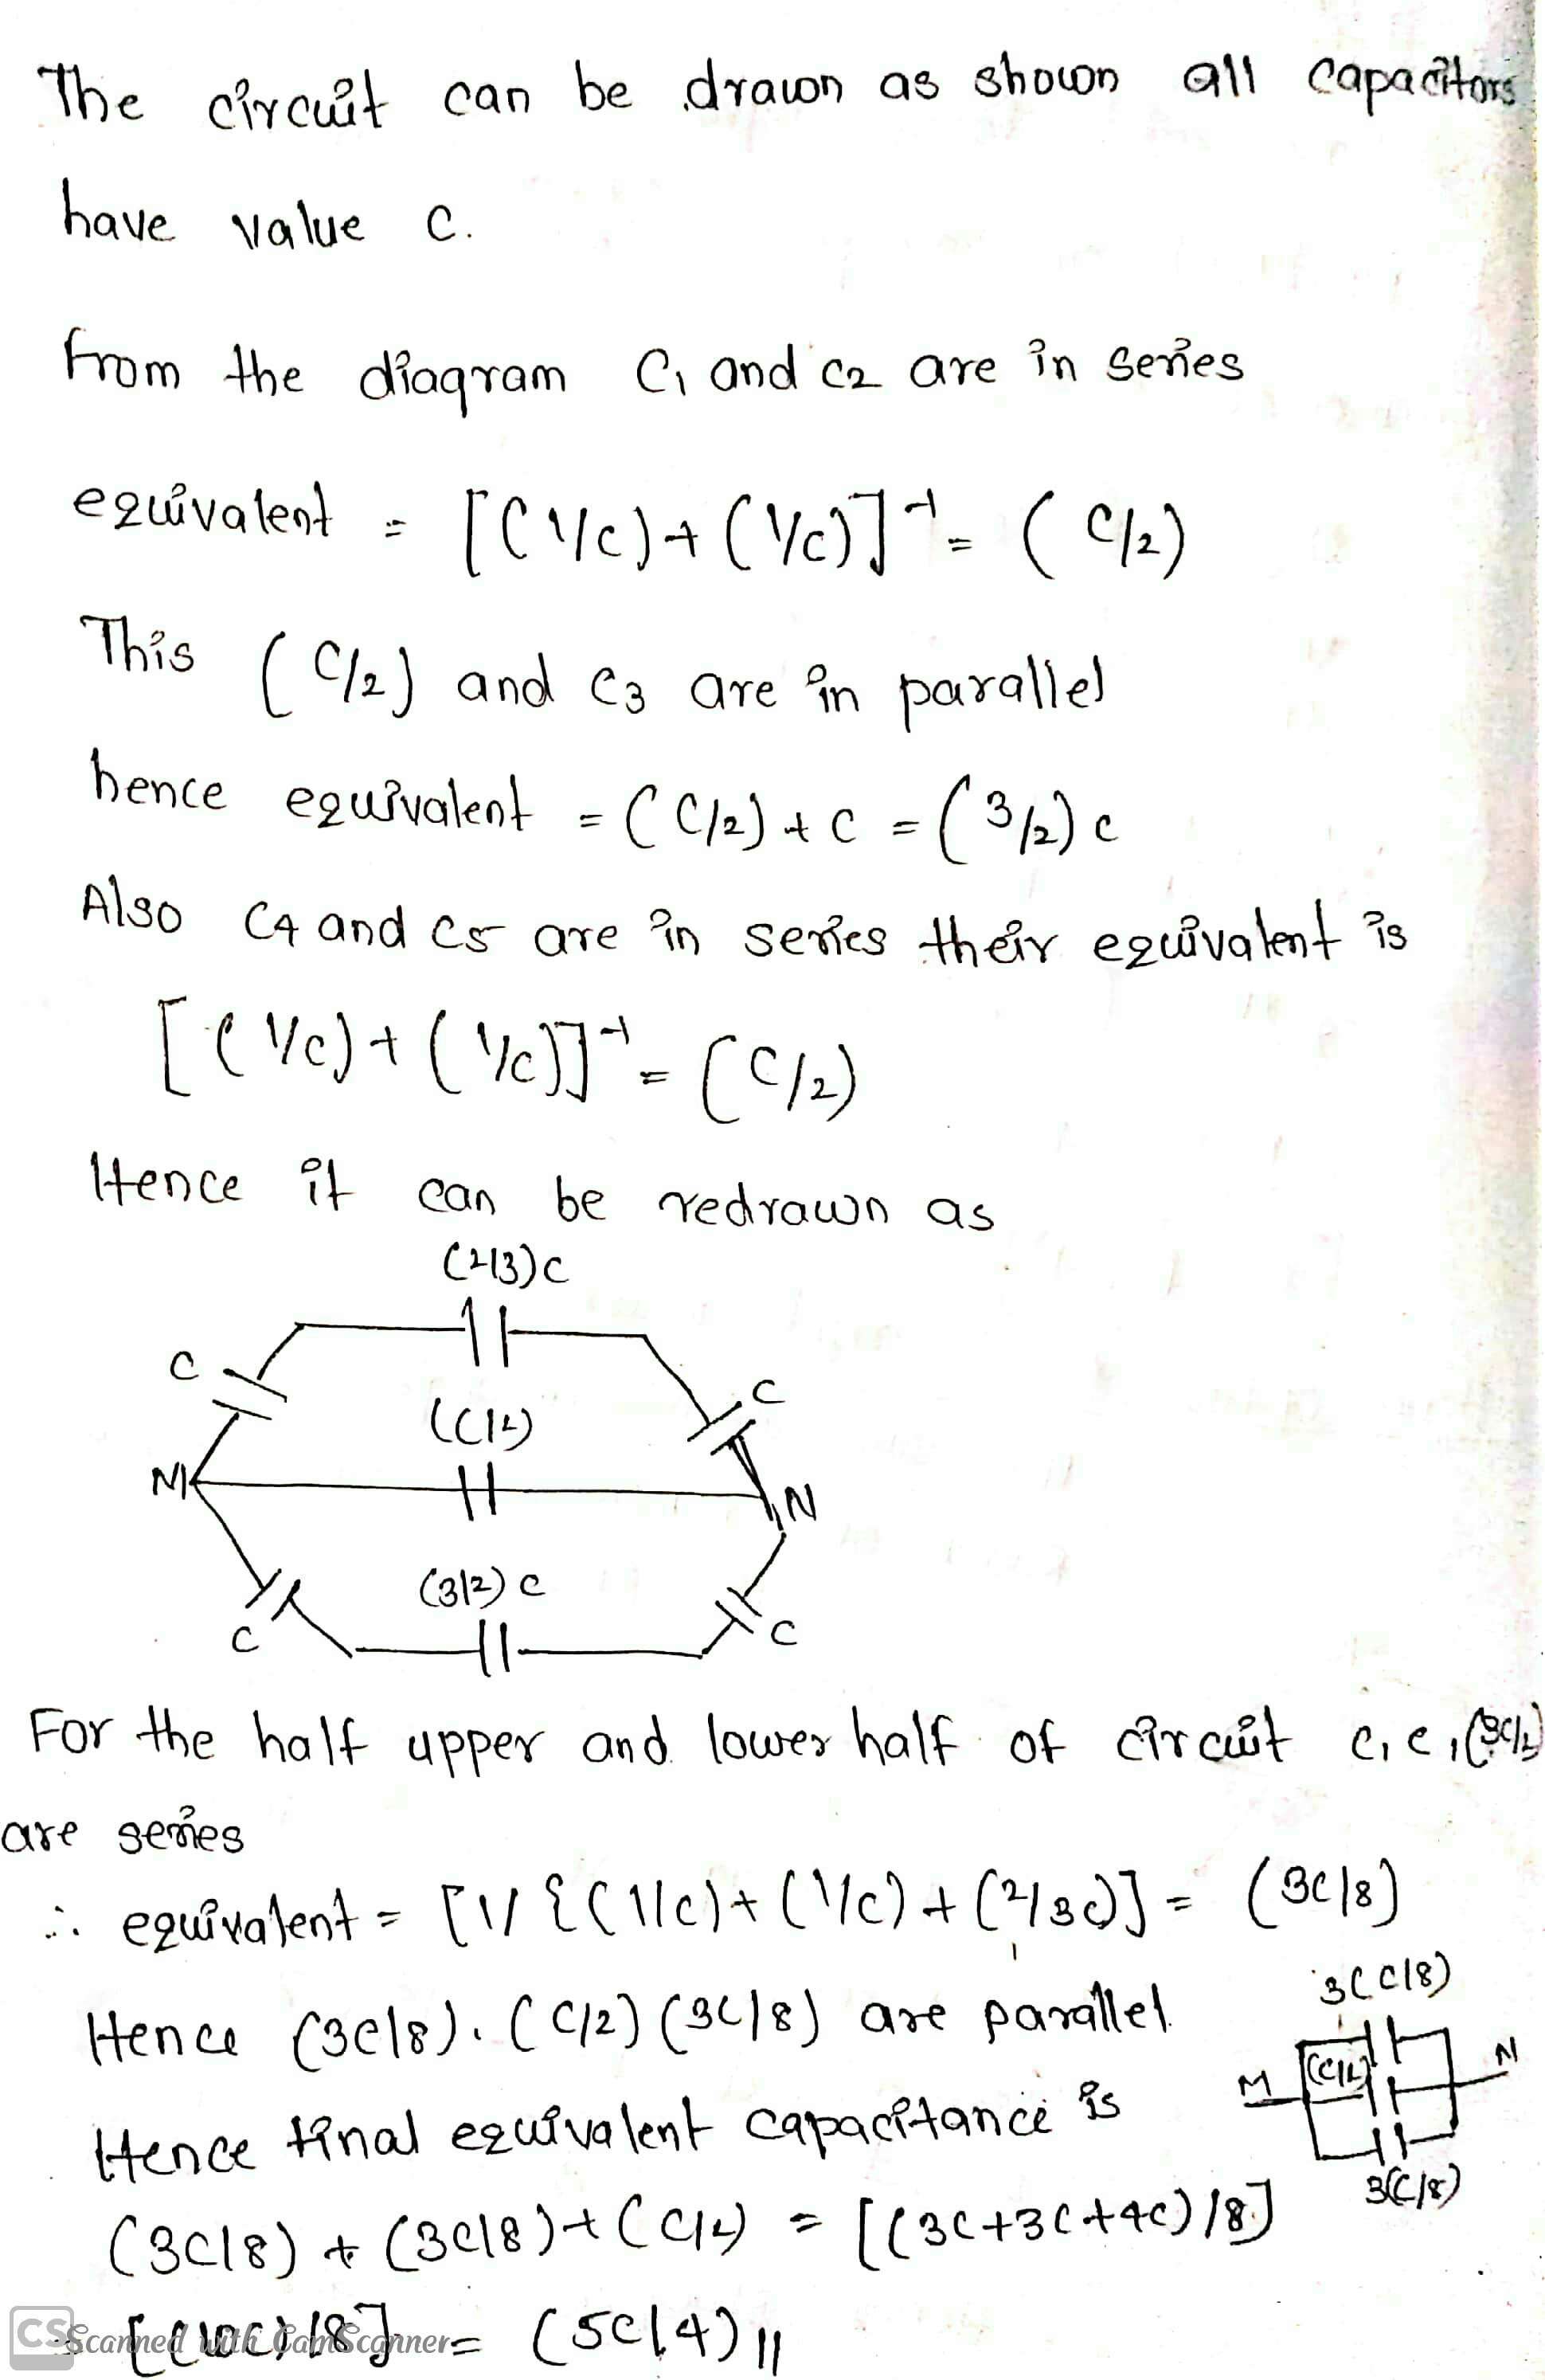 The circuit can be drawn as shown all capacitors
have value C.
From the diagram C1 and C2 are in series
equivalent = [(1/c)+(1/c)]⁻¹ = (C/2)
This (C/2) and C3 are in parallel
hence equivalent = (C/2)+C = (3/2)c
Also C4 and C5 are in series their equivalent is
[(1/c)+(1/c)]⁻¹ = (C/2)
Hence it can be redrawn as
(2/3)C
C
C
(C/2)
M
N
(3/2)C
C
C
For the half upper and lower half of circuit c,c,(3C/2)
are series
∴ equivalent = [1/{(1/c)+(1/c)+(2/3c)] = (3C/8)
Hence (3C/8).(C/2)(3C/8) are parallel
3(C/8)
(C/2)
M
N
3(C/8)
Hence final equivalent capacitance is
(3C/8)+(3C/8)+(C/2) = [(3C+3C+4C)/8]
= [(10C)/8] = (5C/4)//
CS Scanned with CamScanner